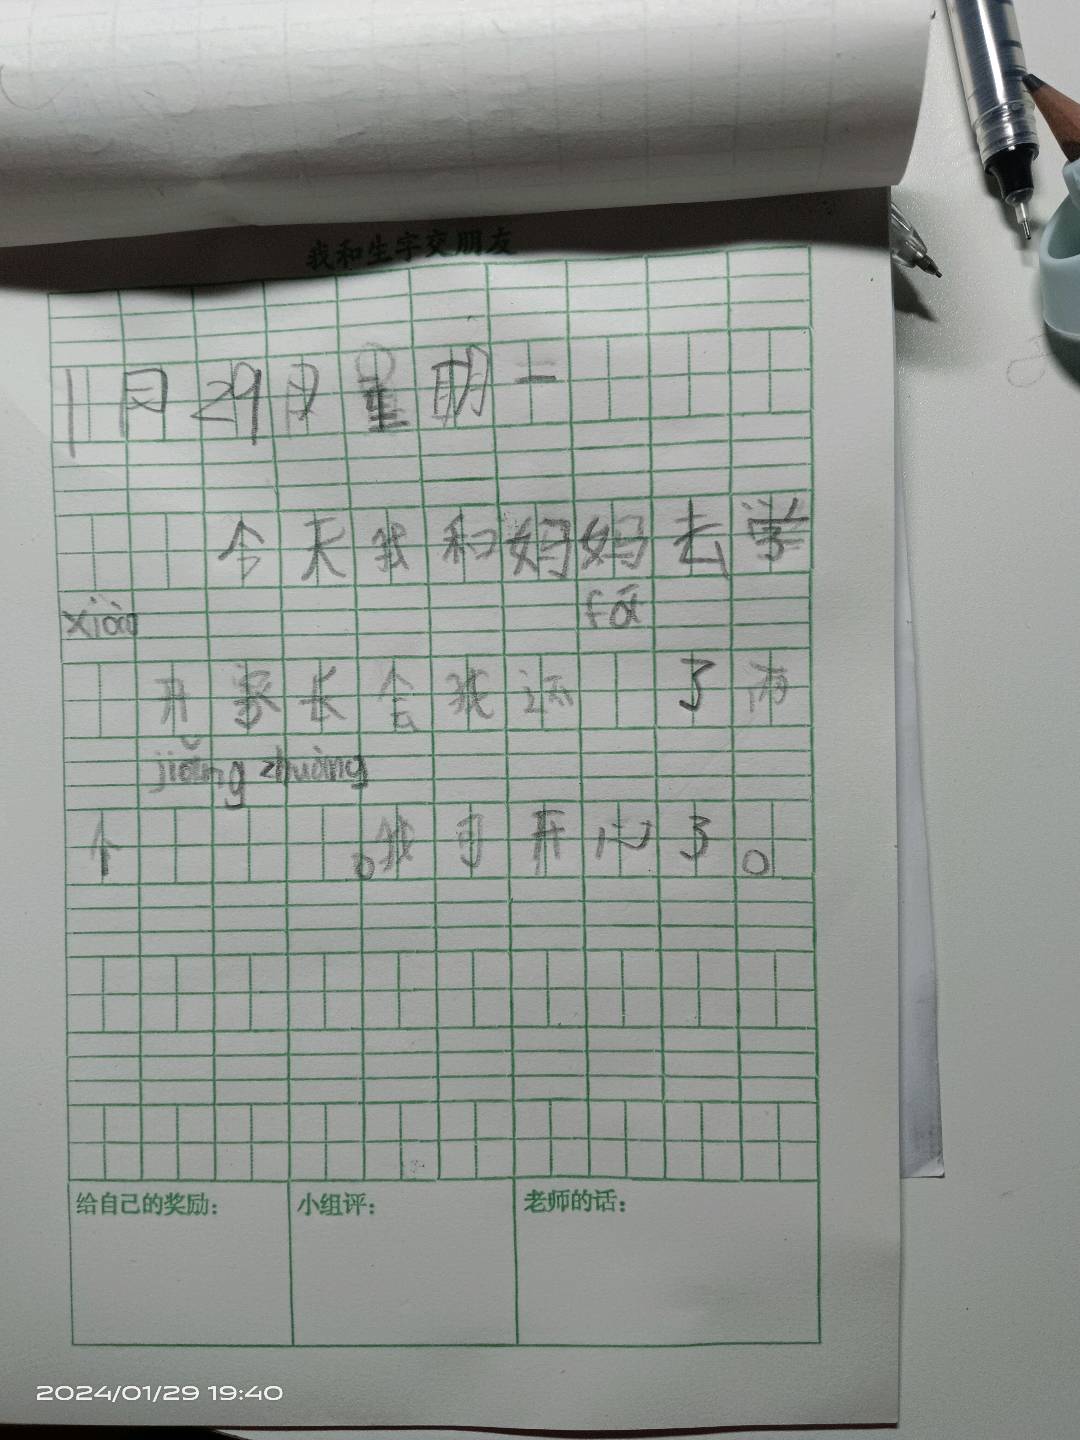 我和生字交朋友
1月29日星期一
今天我和妈妈去学
xiào fā
开家长会我还 了两
jiǎng zhuàng
个 。我可开心了。
给自己的奖励： 小组评： 老师的话：
2024/01/29 19:40